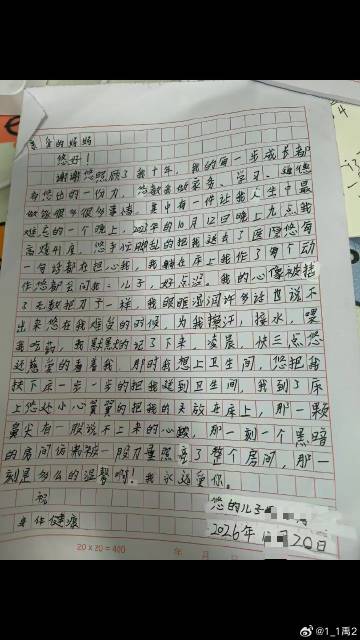 亲爱的妈妈
您好！
谢谢您照顾了我十年，我的每一步成长都
有您出的一份力，您教我做家务、学习、道德
做饭很多很多事情。其中有一件让我人生中最
难忘的一个晚上，2025年的10月12日晚上九点我
高烧41度，您手忙脚乱的把我送去了医院您每
一句话都在担心我，我躺在床上我作了每个动
作您都会问我：儿子，好点没。我的心像被拮
了无数把刀子一样，我眼眶湿润许多话也说不
出来您在我难受的时候，为我擦汗，接水，喂
我吃药，我默默的记了下来，凌晨，快三点您
还慈爱的看着我，那时我想上卫生间，您把我
扶下床一步一步的把我送到卫生间，我到了床
上您处小心翼翼的把我的头放在床上，那一颗
鼻尖有一股说不上来的心酸，那一刻一个黑暗
的房间仿佛被一股力量照亮了整个房间，那一
刻是多么的温馨啊！我永远爱你。
祝
身体健康
您的儿子
2026年 月20日
20×20=400
年 月 日
@1_1禹2